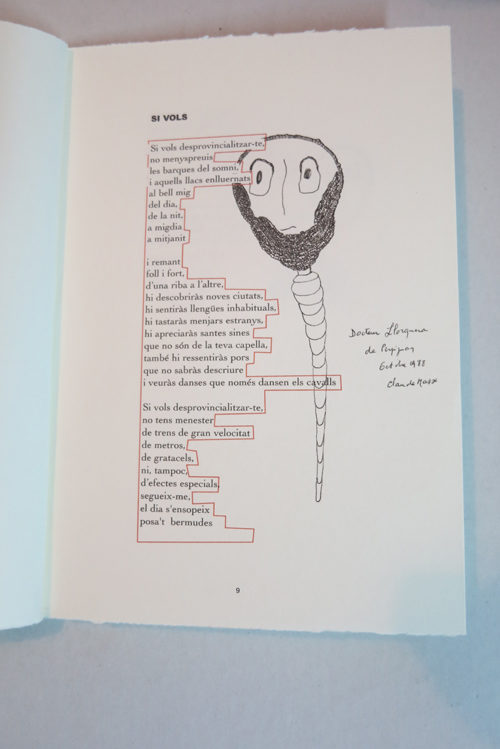 SI VOLS
Si vols desprovincialitzar-te,
no menyspreuis
les barques del somni,
i aquells llacs enlluernats
al bell mig
del dia,
de la nit,
a migdia
a mitjanit
i remant
foll i fort,
d'una riba a l'altre,
hi descobriràs noves ciutats,
hi sentiràs llengües inhabituals,
hi tastaràs menjars estranys,
hi apreciaràs santes sines
que no són de la teva capella,
també hi ressentiràs pors
que no sabràs descriure
i veuràs danses que només dansen els cavalls
Si vols desprovincialitzar-te,
no tens menester
de trens de gran velocitat
de metros,
de gratacels,
ni, tampoc,
d'efectes especials,
segueix-me,
el dia s'ensopeix
posa't bermudes
Docteur
de
9